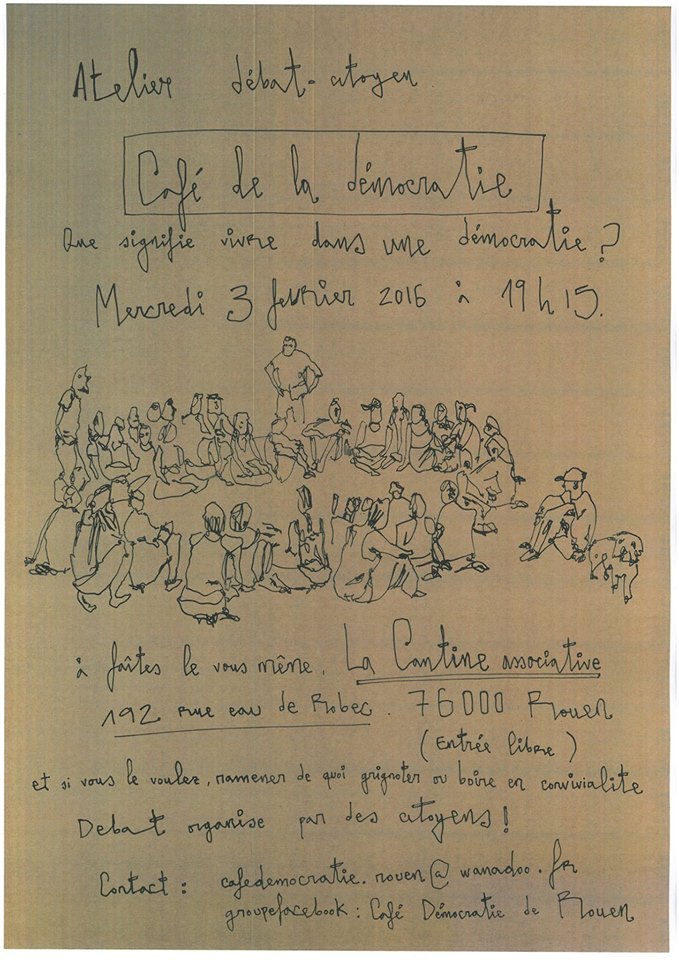 Atelier débat-citoyen
Café de la démocratie
Que signifie vivre dans une démocratie ?
Mercredi 3 février 2016 à 19h15.
à faîtes le vous même. La Cantine associative
192 rue eau de Robec. 76000 Rouen
(Entrée libre)
et si vous le voulez, ramener de quoi grignoter ou boire en convivialite
Debat organise par des citoyens !
Contact : cafedemocratie.rouen@wanadoo.fr
groupefacebook : Café Démocratie de Rouen